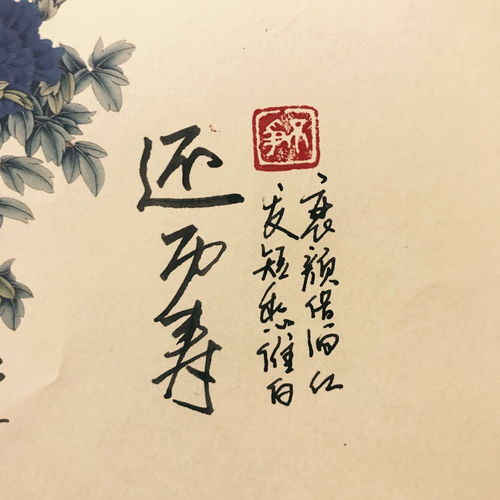 不争
衰颜借酒红
发短愁催白
还功寿